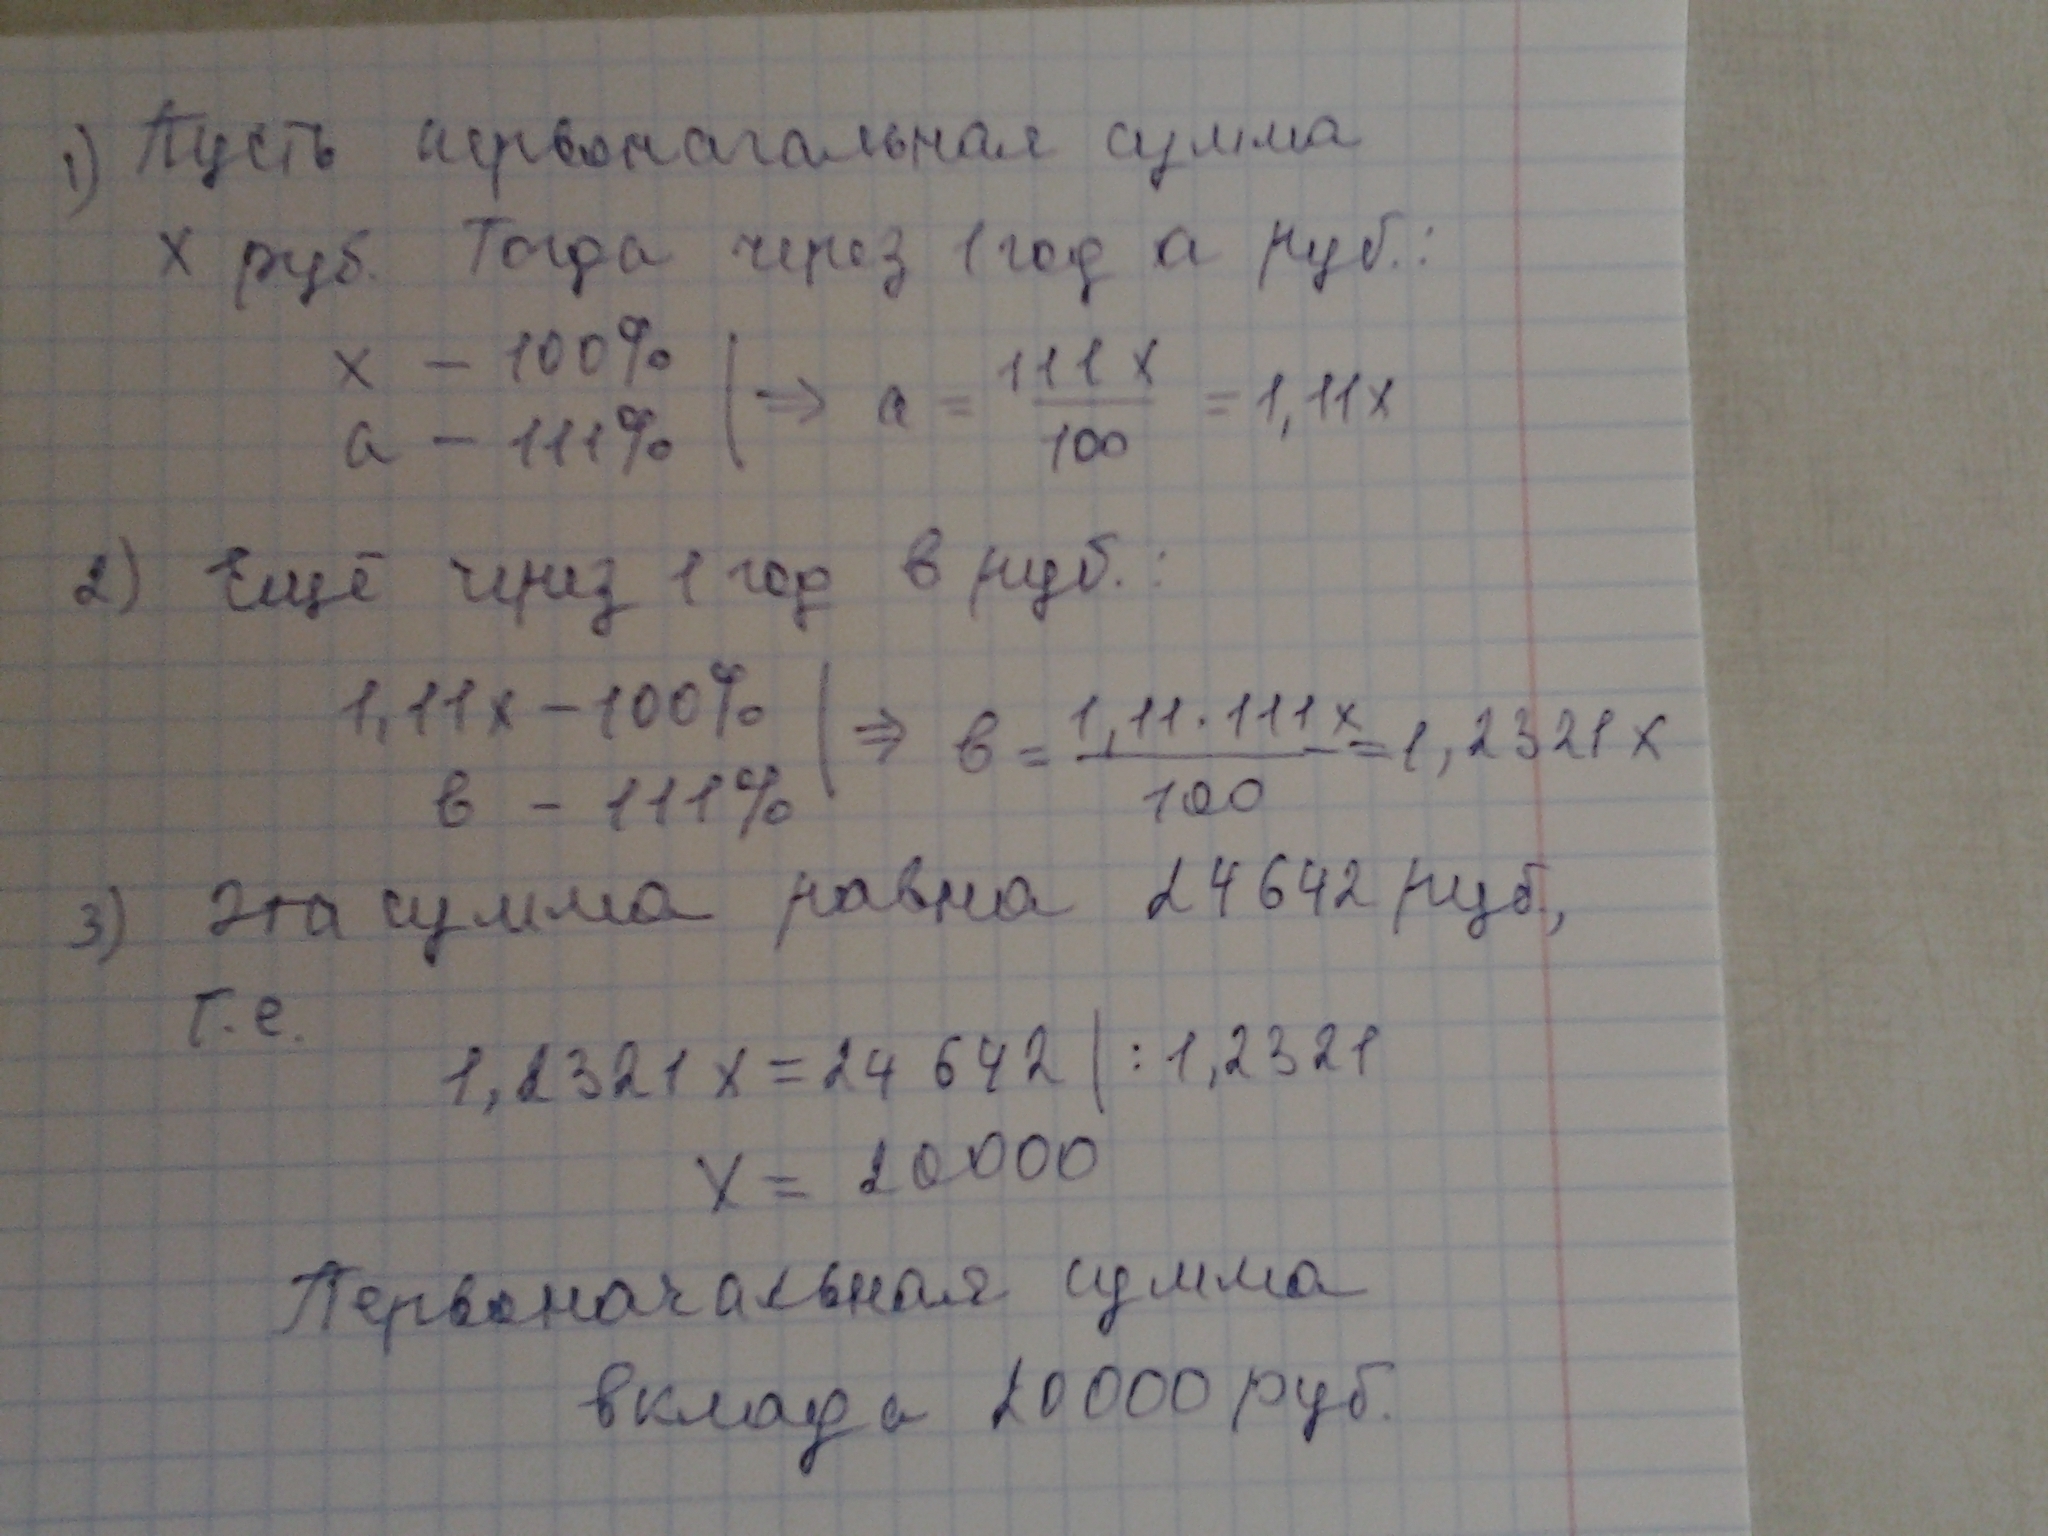 1) Пусть первоначальная сумма
x руб. Тогда через 1 год a руб.:
x – 100%
a – 111% | ⇒ a = 111x/100 = 1,11x
2) Ещё через 1 год в руб.:
1,11x – 100%
в – 111% | ⇒ в = 1,11·111x/100 = 1,2321x
3) Эта сумма равна 24642 руб.,
т.е.
1,2321x = 24 642 | : 1,2321
x = 20000
Первоначальная сумма
вклада 20000 руб.